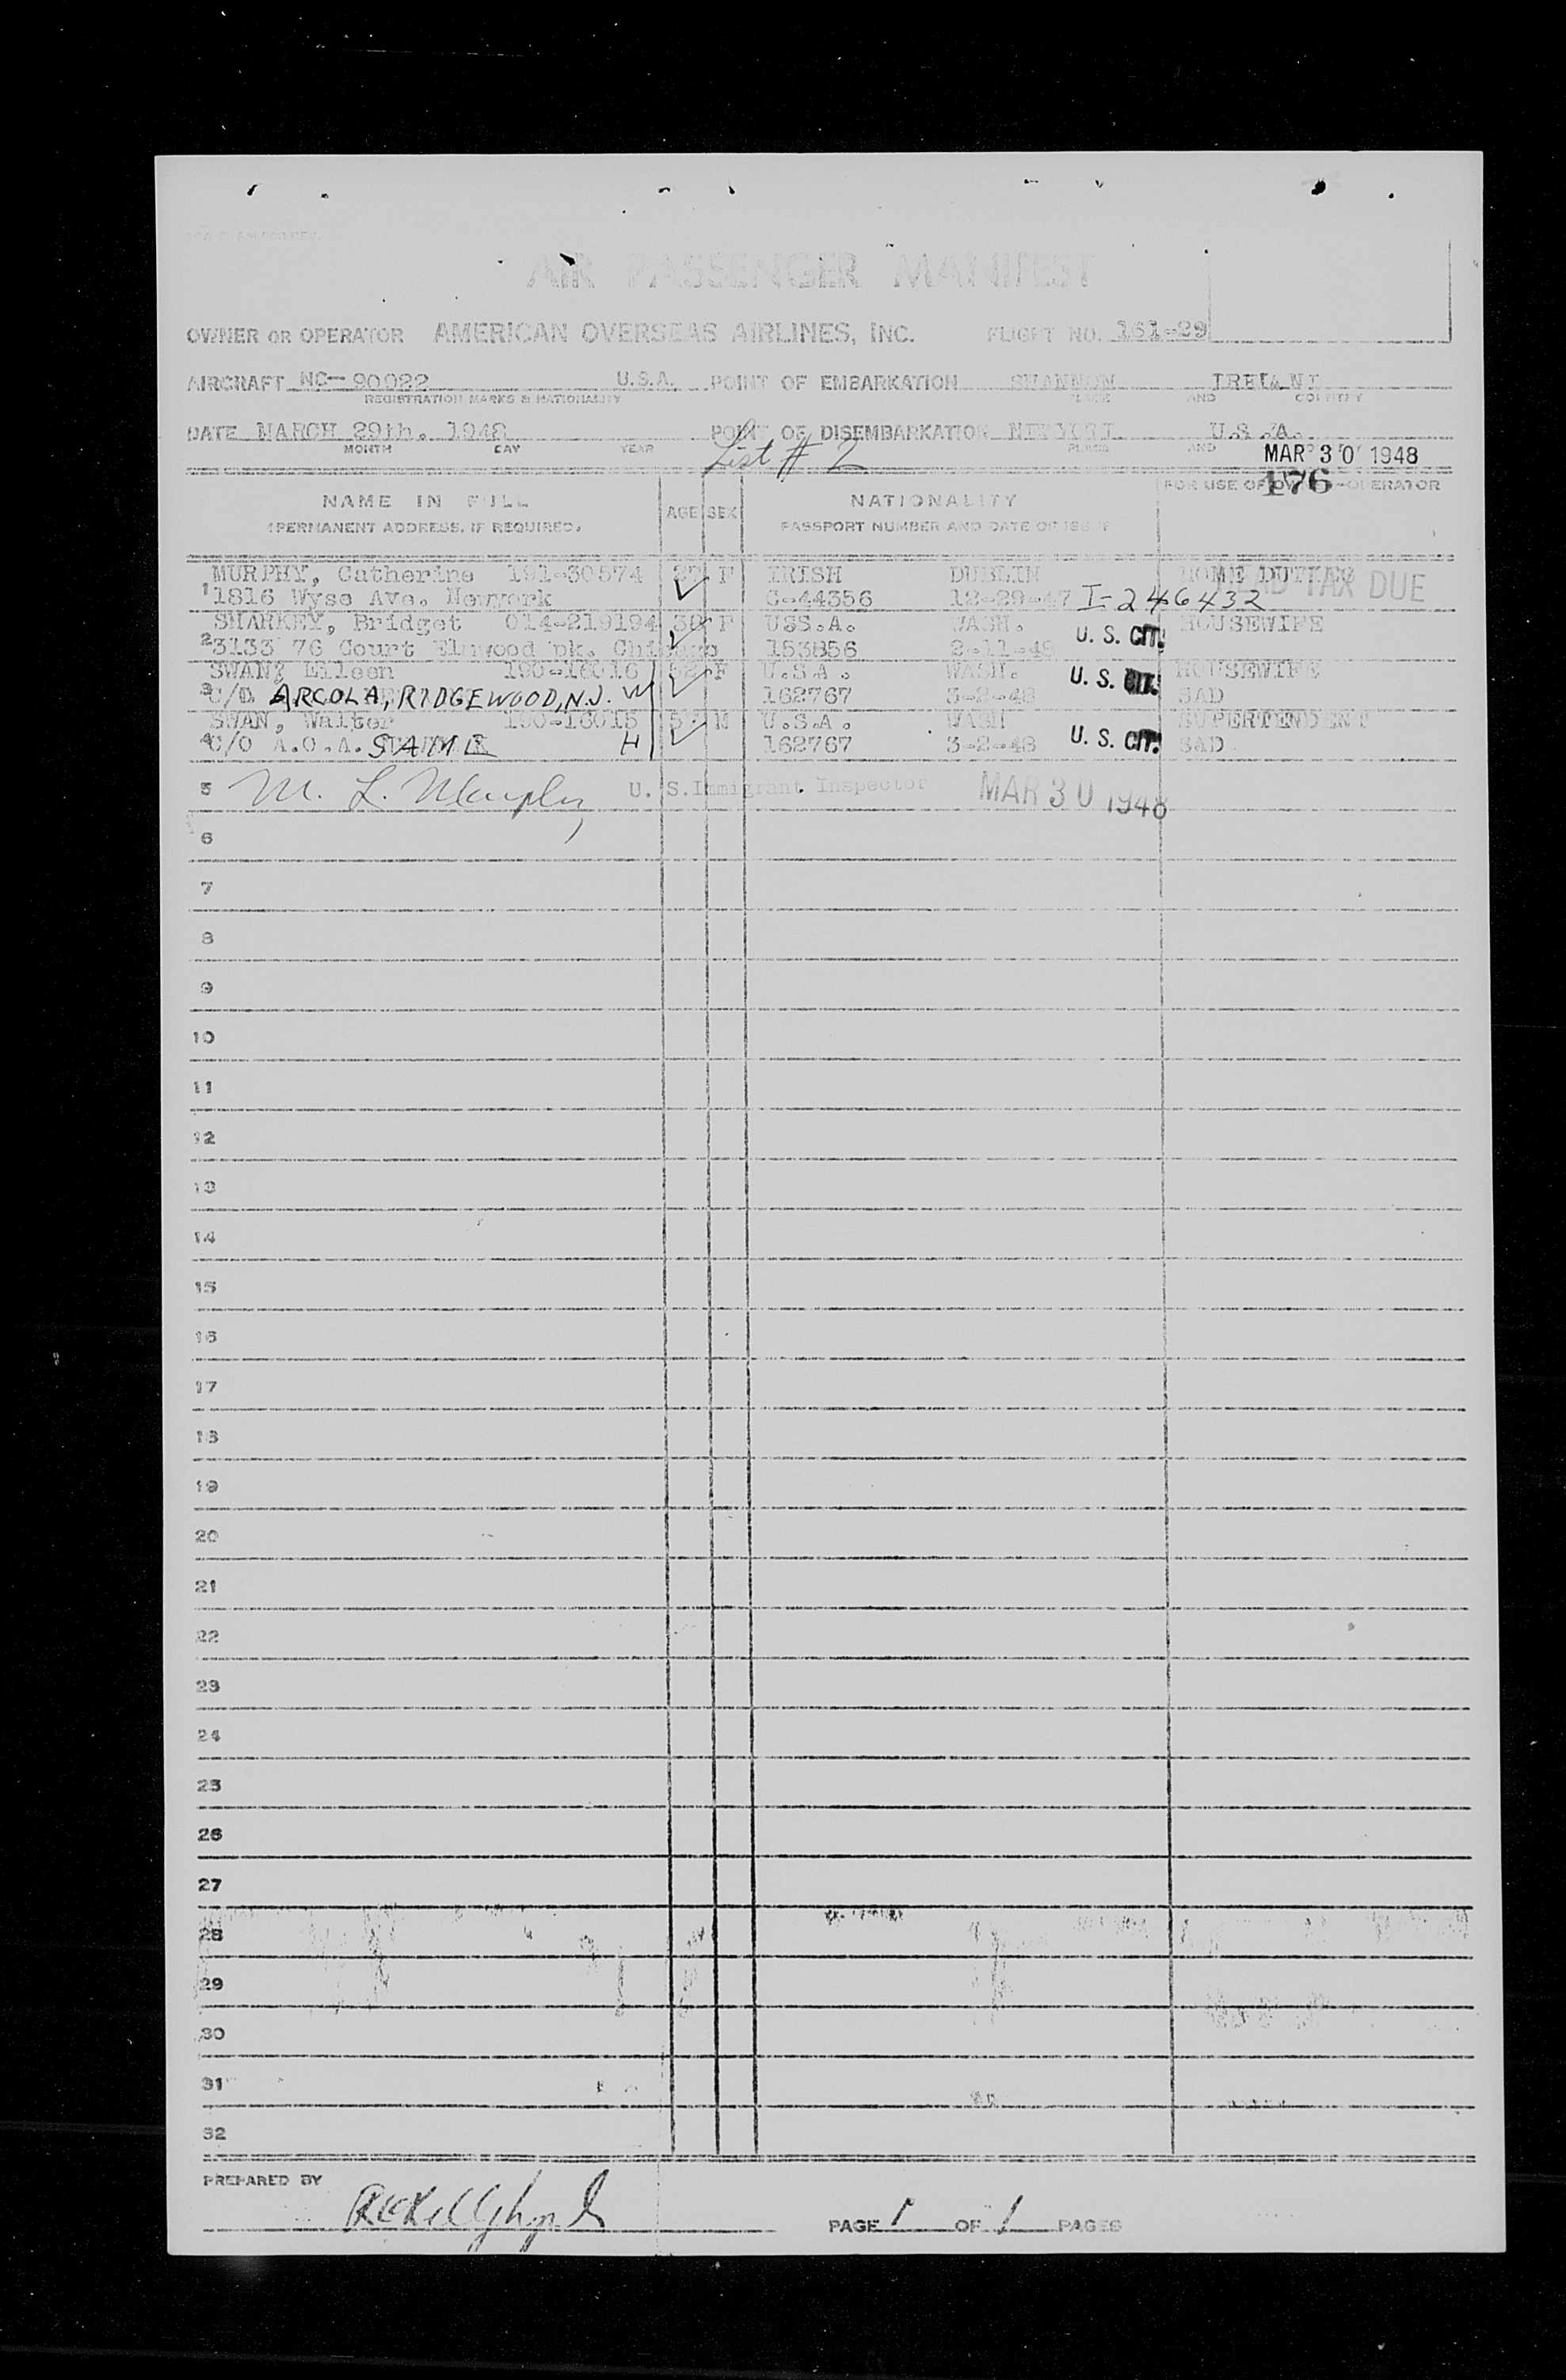 AIR PASSENGER MANIFEST
OWNER OR OPERATOR AMERICAN OVERSEAS AIRLINES, INC. FLIGHT NO. 161-29
AIRCRAFT NC-90922 U.S.A. POINT OF EMBARKATION SHANNON IRELAND
REGISTRATION MARKS & NATIONALITY PLACE AND COUNTRY
DATE MARCH 29th. 1948 POINT OF DISEMBARKATION U.S.A.
MONTH DAY YEAR PLACE AND
List # 2 MAR 30 1948
176
NAME IN FULL AGE SEX NATIONALITY FOR USE OF OWNER-OPERATOR
(PERMANENT ADDRESS, IF REQUIRED) PASSPORT NUMBER AND DATE OF ISSUE
MURPHY, Catherine 191-30574 F IRISH DUBLIN HOME DUTIES
1 1816 Wyse Ave. Newyork C-44356 12-29-47 I-246432 TAX DUE
SHARKEY, Bridget 014-219194 F USS.A. WASH. HOUSEWIFE
2 3133 76 Court Elmwood pk. Chicago 153856 2-11-48 U. S. CIT.
SWAN, Eileen 190-16016 52 F U.S.A. WASH. HOUSEWIFE
3 C/O ARCOLA, RIDGEWOOD, N.J. W 162767 3-2-48 U. S. CIT. SAD
SWAN, Walter 190-16015 M U.S.A. WASH SUPERTENDENT
4 C/O A.O.A. SAME H 162767 3-2-48 U. S. CIT. SAD
5 M. L. Murphy U. S. Immigrant Inspector MAR 30 1948
6
7
8
9
10
11
12
13
14
15
16
17
18
19
20
21
22
23
24
25
26
27
28
29
30
31
32
PREPARED BY
PAGE 1 OF 1 PAGES